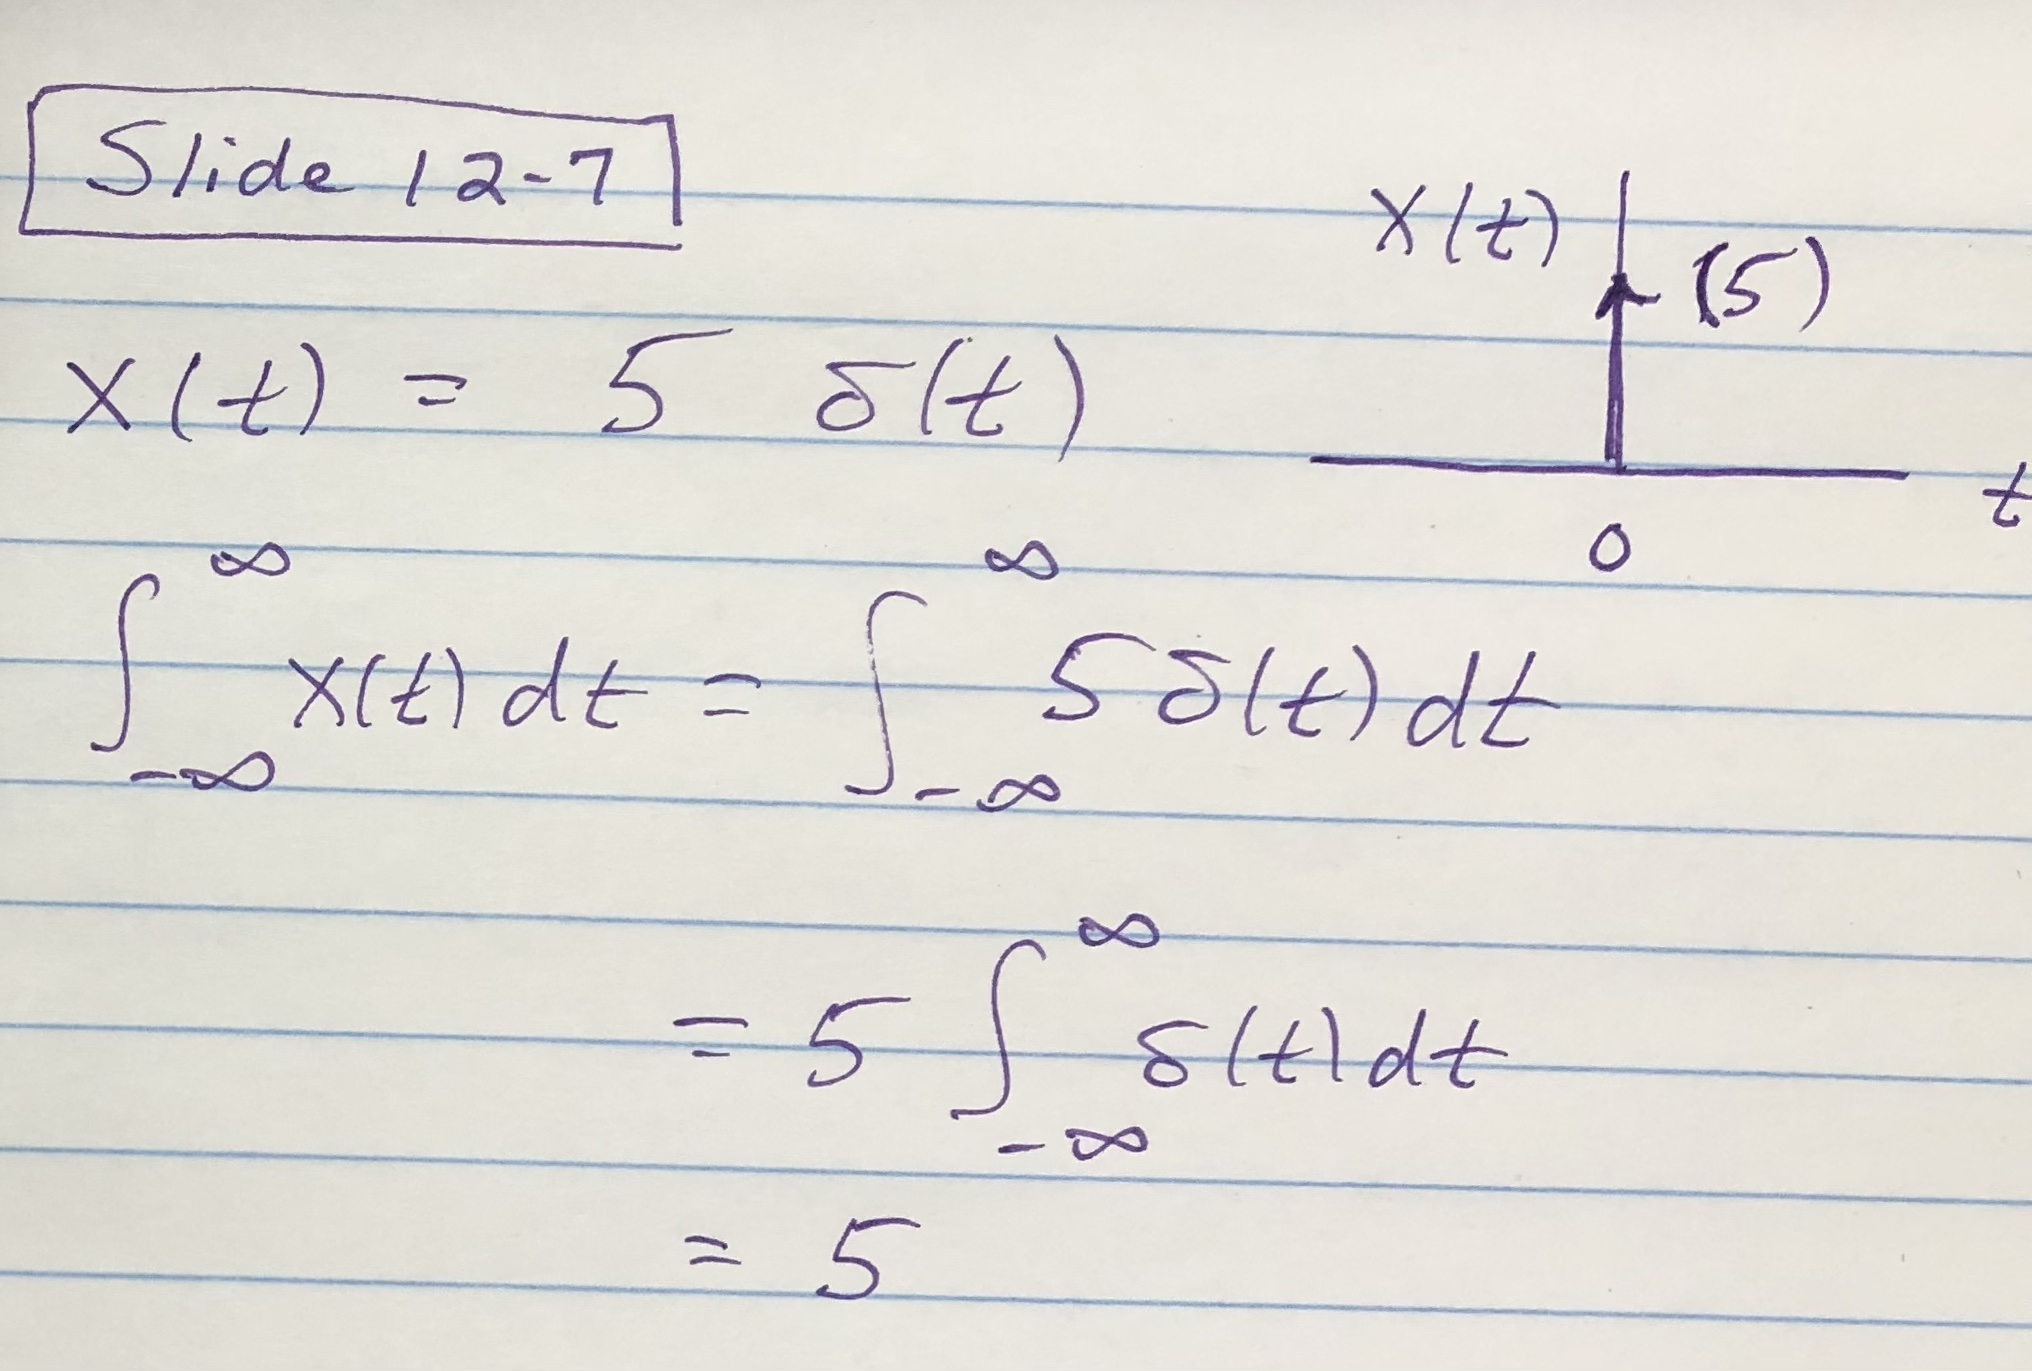 Slide 12-7
x(t) (5)
x(t) = 5 δ(t)
t
0
∫_{-∞}^{∞} x(t) dt = ∫_{-∞}^{∞} 5 δ(t) dt
= 5 ∫_{-∞}^{∞} δ(t) dt
= 5